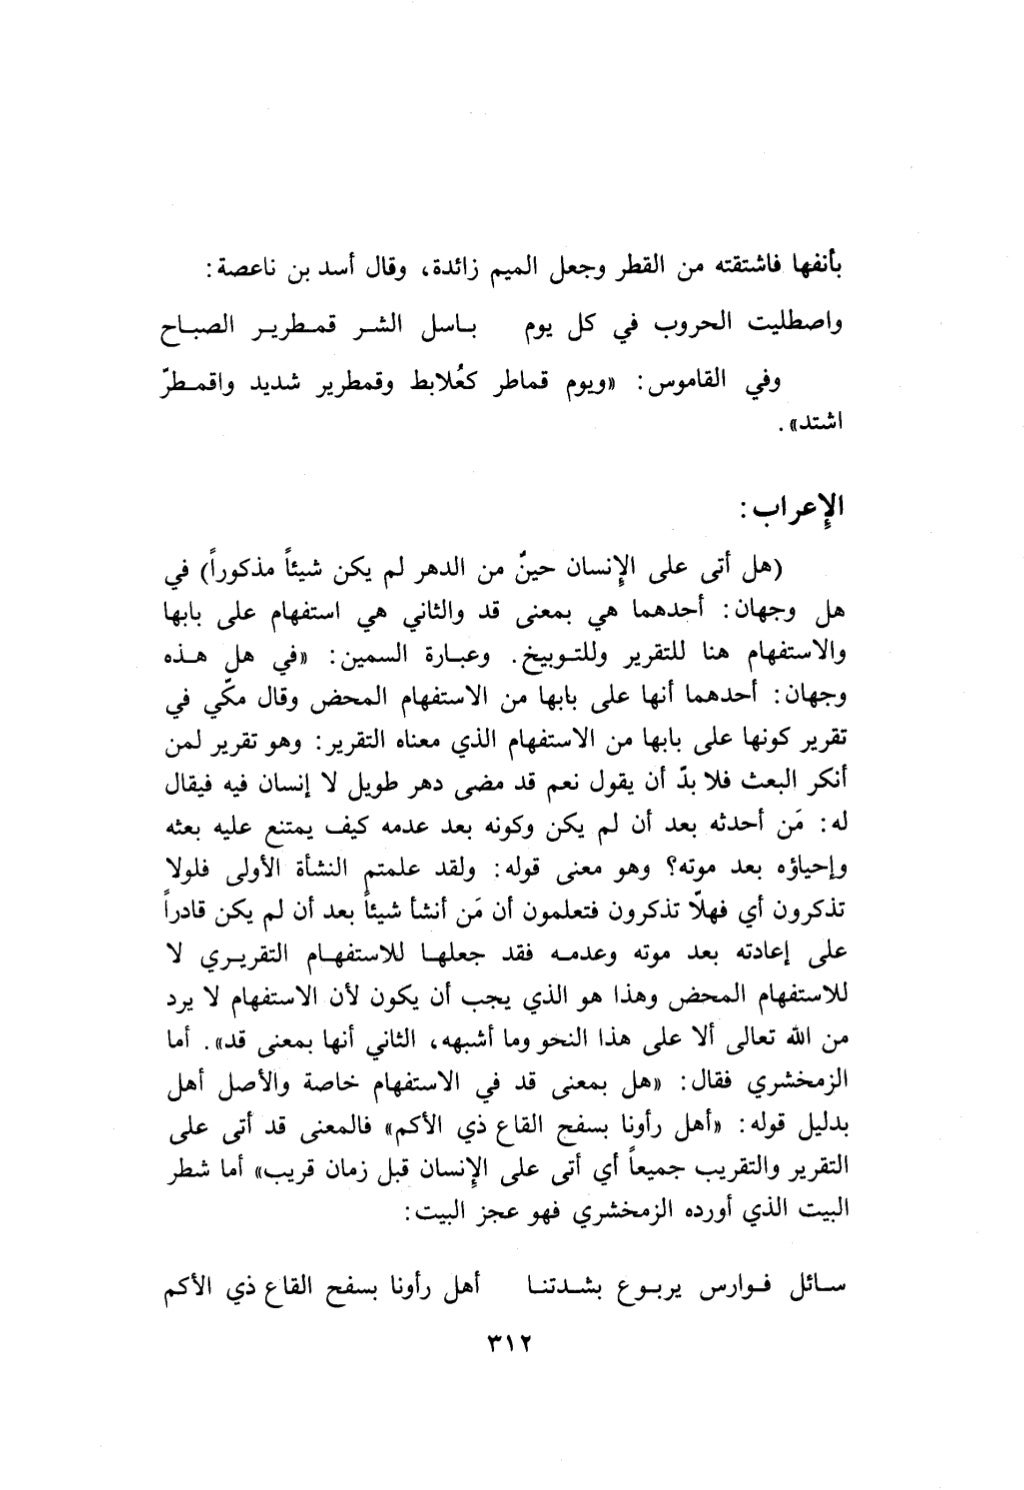 بأنفها فاشتقته من القطر وجعل الميم زائدة، وقال أسد بن ناعصة:
واصطليت الحروب في كل يوم باسل الشر قمطرير الصباح
وفي القاموس: «ويوم قماطر كعُلابط وقمطرير شديد واقمطرّ
اشتد».
الإعراب:
(هل أتى على الإنسان حينٌ من الدهر لم يكن شيئاً مذكوراً) في
هل وجهان: أحدهما هي بمعنى قد والثاني هي استفهام على بابها
والاستفهام هنا للتقرير وللتوبيخ. وعبارة السمين: «في هل هذه
وجهان: أحدهما أنها على بابها من الاستفهام المحض وقال مكّي في
تقرير كونها على بابها من الاستفهام الذي معناه التقرير: وهو تقرير لمن
أنكر البعث فلا بدّ أن يقول نعم قد مضى دهر طويل لا إنسان فيه فيقال
له: مَن أحدثه بعد أن لم يكن وكونه بعد عدمه كيف يمتنع عليه بعثه
وإحياؤه بعد موته؟ وهو معنى قوله: ولقد علمتم النشأة الأولى فلولا
تذكرون أي فهلّا تذكرون فتعلمون أن مَن أنشأ شيئاً بعد أن لم يكن قادراً
على إعادته بعد موته وعدمه فقد جعلها للاستفهام التقريري لا
للاستفهام المحض وهذا هو الذي يجب أن يكون لأن الاستفهام لا يرد
من الله تعالى ألا على هذا النحو وما أشبهه، الثاني أنها بمعنى قد». أما
الزمخشري فقال: «هل بمعنى قد في الاستفهام خاصة والأصل أهل
بدليل قوله: «أهل رأونا بسفح القاع ذي الأكم» فالمعنى قد أتى على
التقرير والتقريب جميعاً أي أتى على الإنسان قبل زمان قريب» أما شطر
البيت الذي أورده الزمخشري فهو عجز البيت:
سائل فوارس يربوع بشدتنا أهل رأونا بسفح القاع ذي الأكم
٣١٢